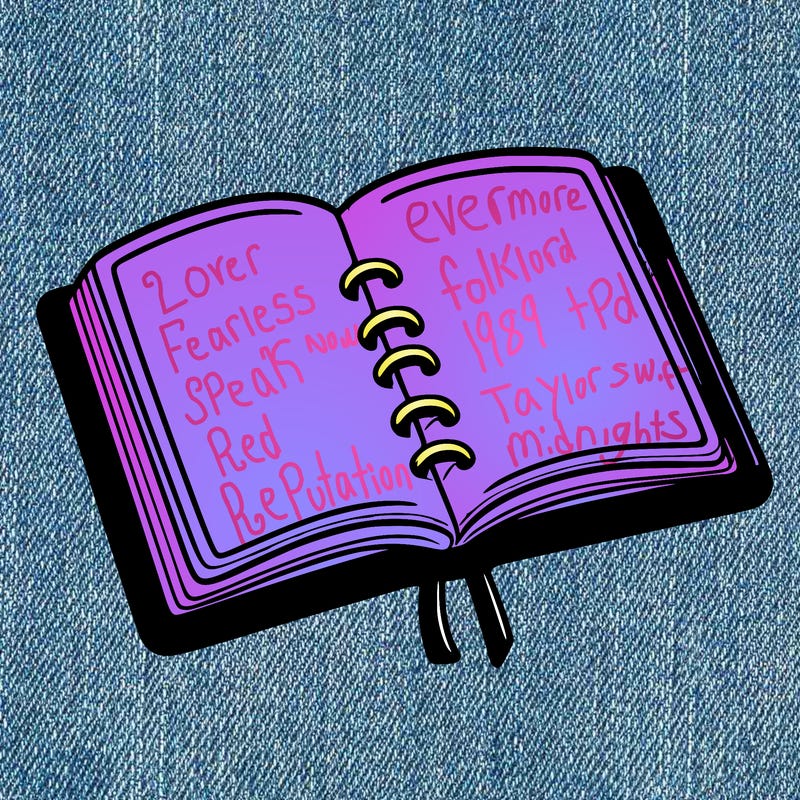 Lover
Fearless
SPeaK Now
Red
RePutation
evermore
folKlord
1989 tPd
Taylor swif
midnights